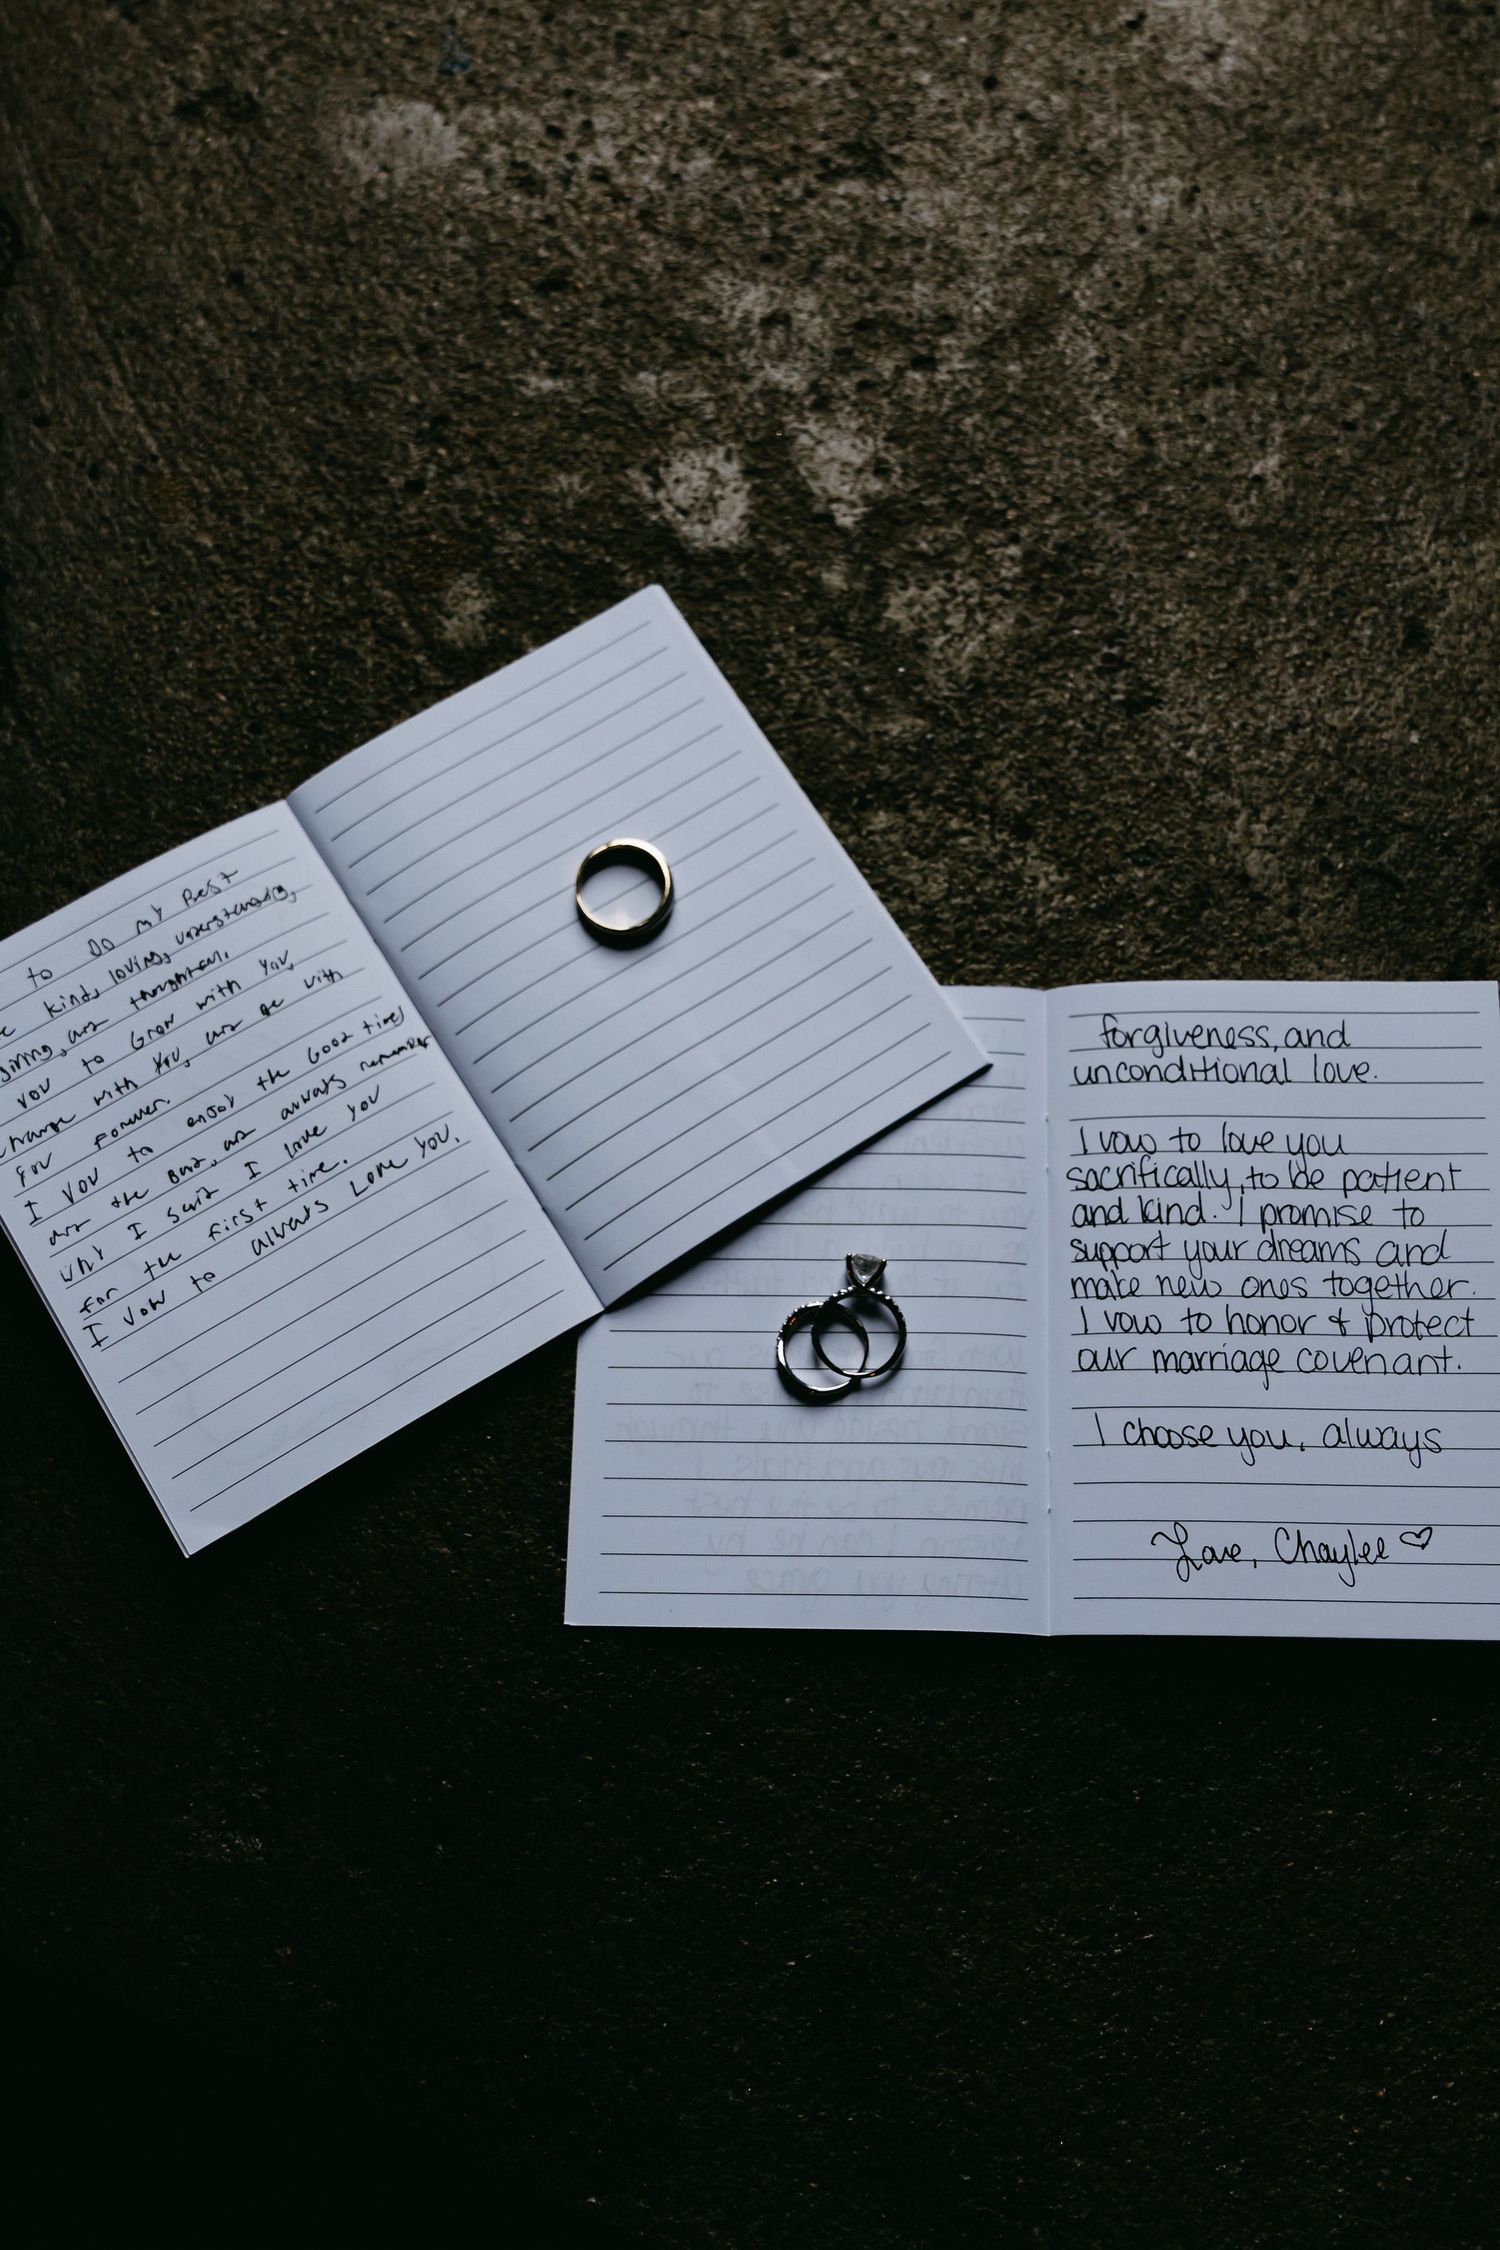 to Do my Best
kind, loving, understanding,
giving, and thoughtful.
vow to Grow with you,
change with you, and be with
you forever.
I vow to enjoy the Good times
and the Bad, and always remember
why I said I love you
for the first time.
I vow to always Love you.
forgiveness, and
unconditional love.
I vow to love you
sacrifically, to be patient
and kind. I promise to
support your dreams and
make new ones together.
I vow to honor & protect
our marriage covenant.
I choose you, always
Love, Chaylee ♡